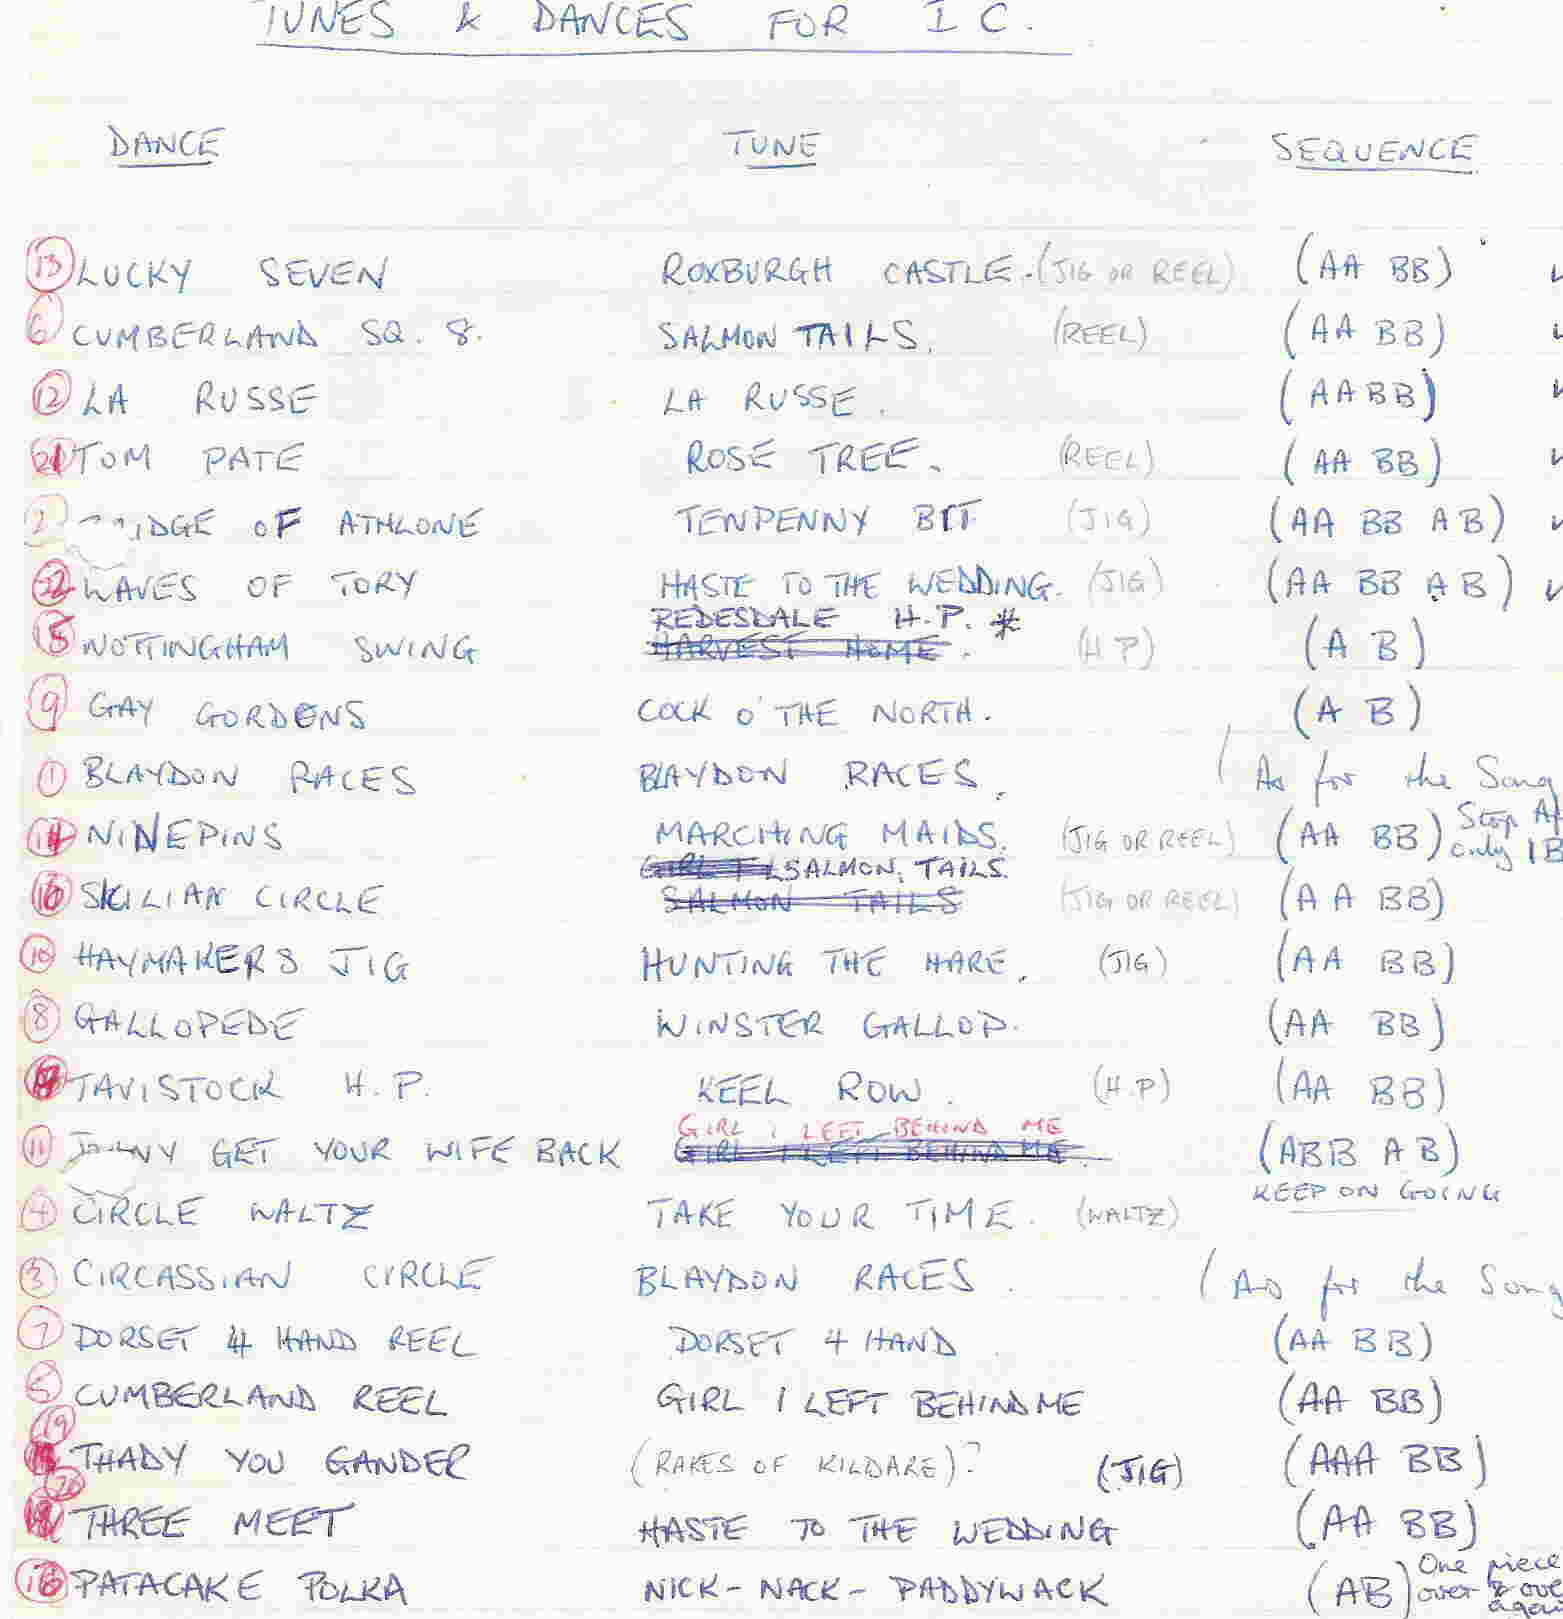 TUNES & DANCES FOR I C.
DANCE TUNE SEQUENCE
13 LUCKY SEVEN ROXBURGH CASTLE. (JIG OR REEL) (AA BB)
6 CUMBERLAND SQ. 8. SALMON TAILS. (REEL) (AA BB)
12 LA RUSSE LA RUSSE. (AABB)
21 TOM PATE ROSE TREE. (REEL) (AA BB)
2 IDGE OF ATHLONE TENPENNY BIT (JIG) (AA BB AB)
22 WAVES OF TORY HASTE TO THE WEDDING. (JIG) (AA BB AB)
REDESDALE H.P. #
15 NOTTINGHAM SWING HARVEST HOME. (H P) (A B)
9 GAY GORDONS COCK O' THE NORTH. (A B)
1 BLAYDON RACES BLAYDON RACES. (As for the Song
14 NINEPINS MARCHING MAIDS. (JIG OR REEL) (AA BB) Stop
only 1B
GIRL I SALMON TAILS
SICILIAN CIRCLE SALMON TAILS (JIG OR REEL) (AA BB)
10 HAYMAKERS JIG HUNTING THE HARE. (JIG) (AA BB)
8 GALLOPEDE WINSTER GALLOP. (AA BB)
TAVISTOCK H.P. KEEL ROW. (H.P) (AA BB)
GIRL I LEFT BEHIND ME
11 JOHNNY GET YOUR WIFE BACK GIRL I LEFT BEHIND ME. (ABB AB)
KEEP ON GOING
4 CIRCLE WALTZ TAKE YOUR TIME. (WALTZ)
3 CIRCASSIAN CIRCLE BLAYDON RACES. (As for the Song
7 DORSET 4 HAND REEL DORSET 4 HAND. (AA BB)
5 CUMBERLAND REEL GIRL I LEFT BEHIND ME (AA BB)
19 THADY YOU GANDER (RAKES OF KILDARE)? (JIG) (AAA BB)
20 THREE MEET HASTE TO THE WEDDING (AA BB)
16 PATACAKE POLKA NICK-NACK-PADDYWACK (AB) One piece
over & ove
again